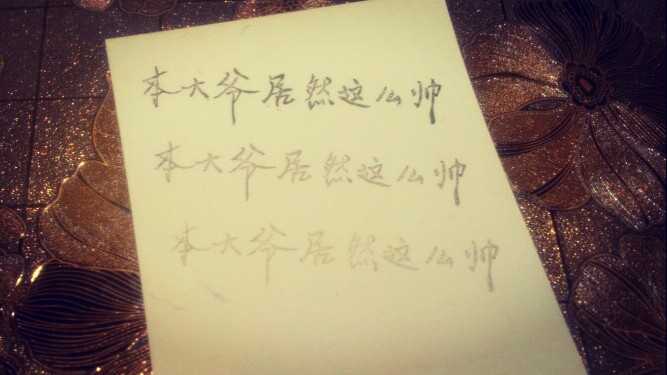 本大爷居然这么帅
本大爷居然这么帅
本大爷居然这么帅